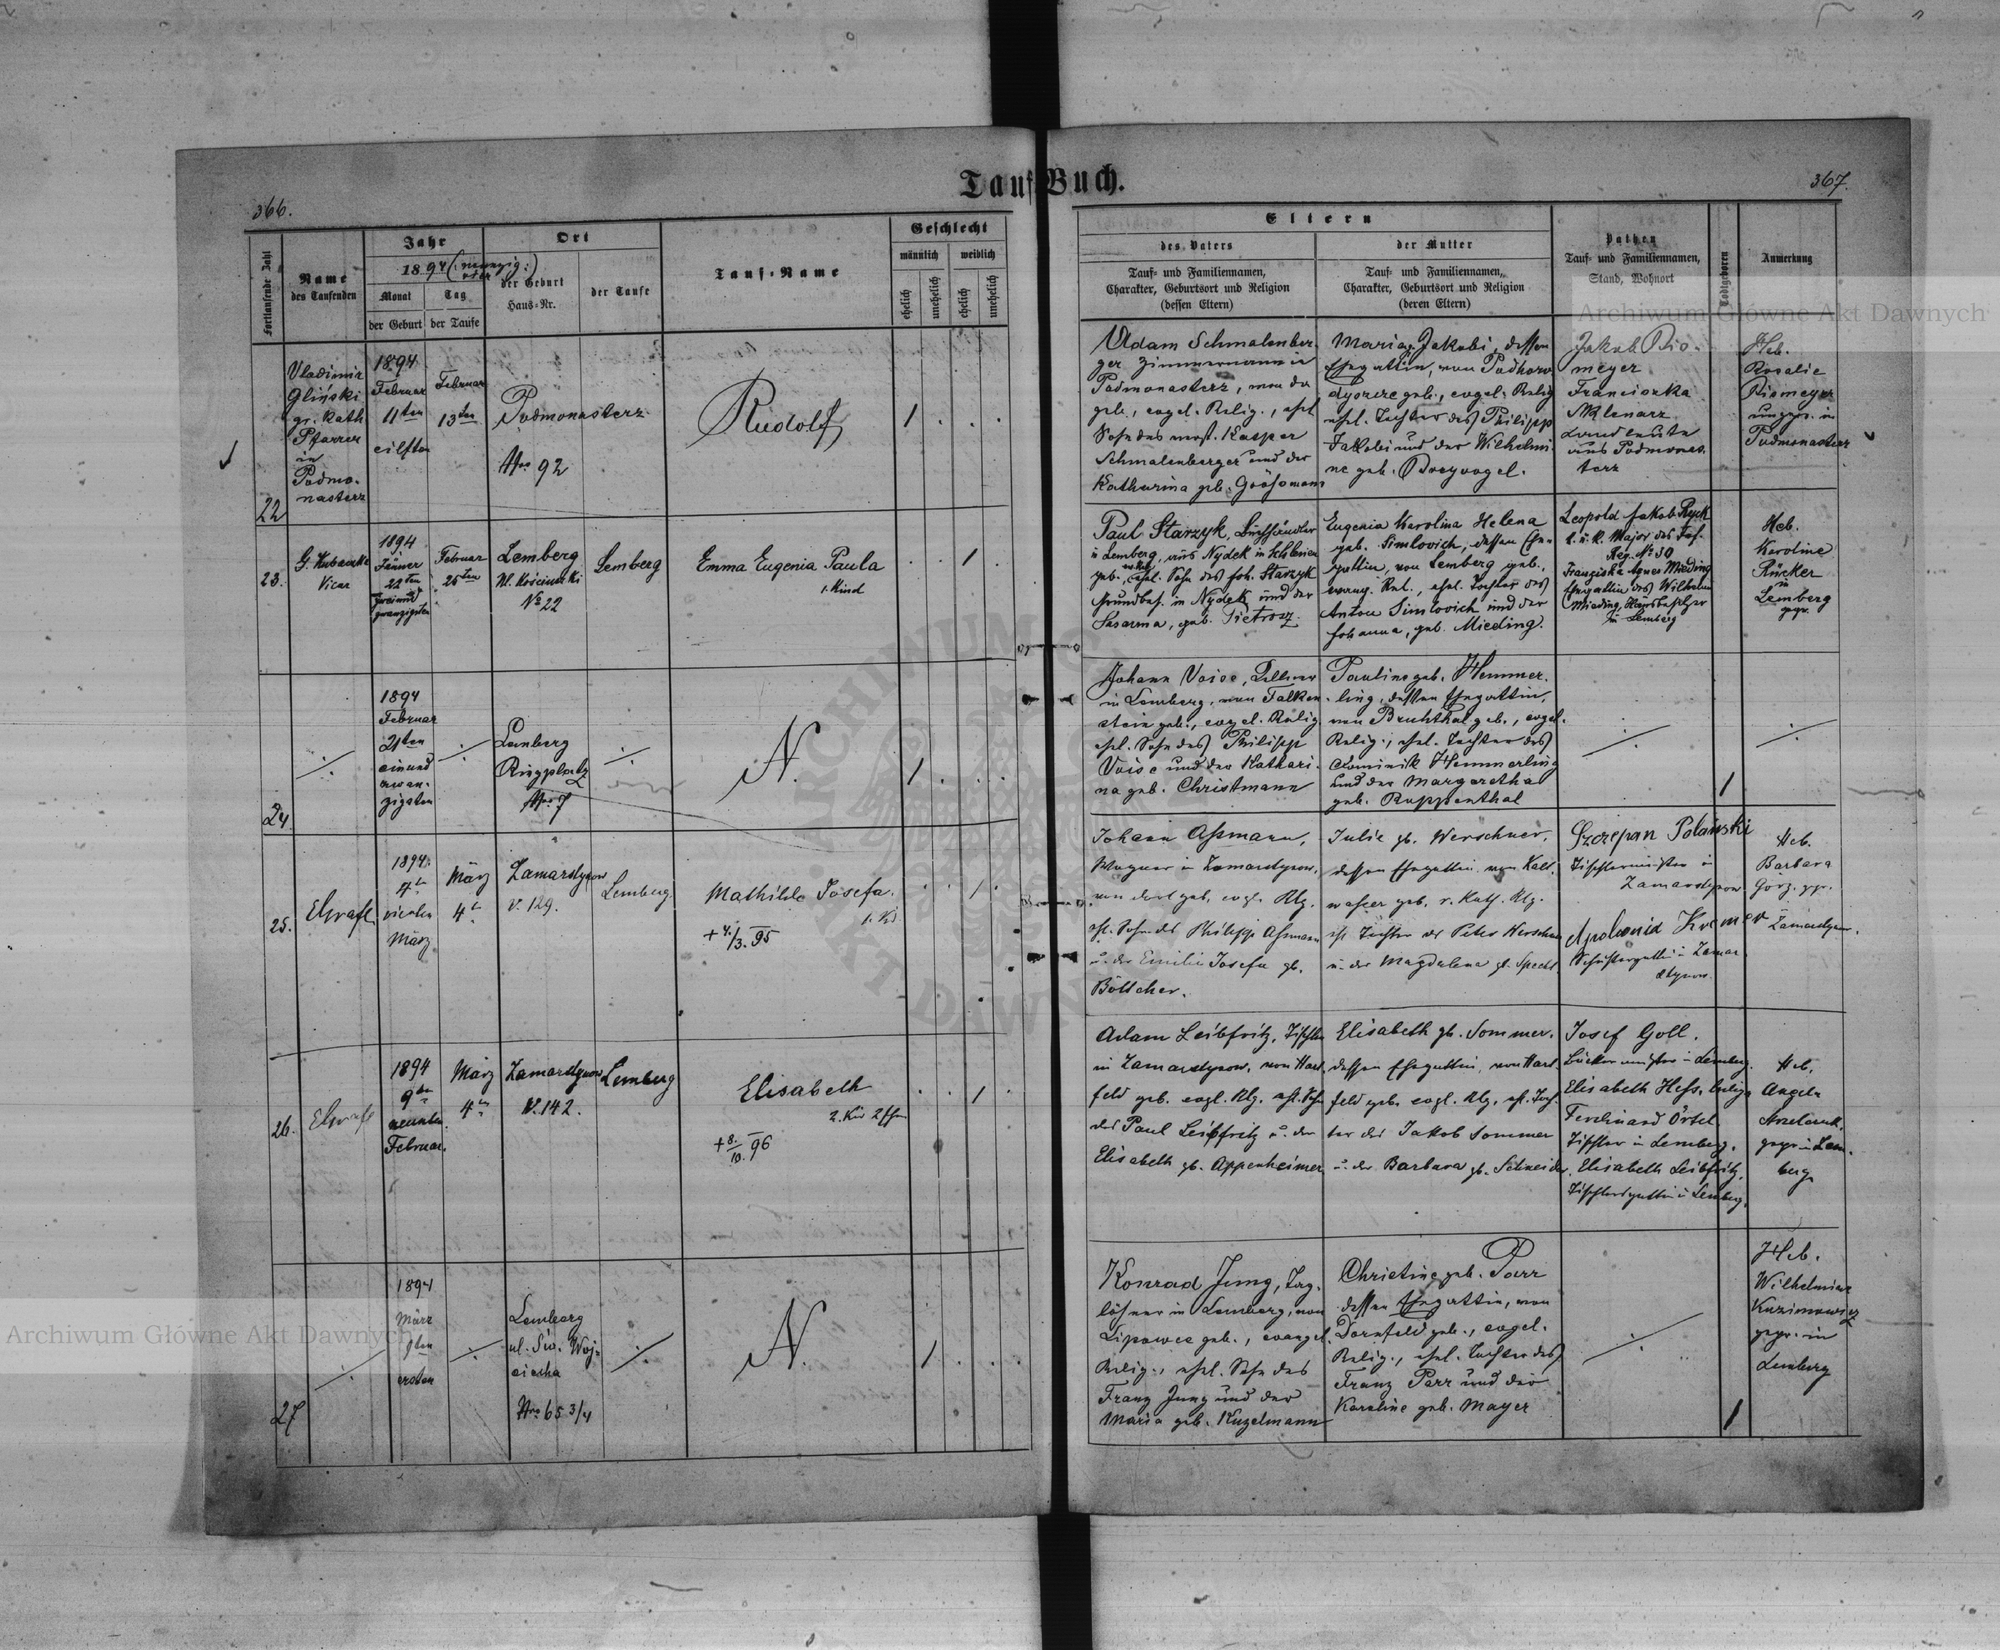 Tauf-Buch.
366.
367.
Fortlaufende Zahl
Name
des Taufenden
Jahr
1894 (: neunzig: vier
Monat
der Geburt
Tag
der Taufe
Ort
der Geburt
Haus-Nr.
der Taufe
Tauf-Name
Geschlecht
männlich
weiblich
ehelich
unehelich
ehelich
unehelich
Eltern
des Vaters
Tauf- und Familiennamen,
Charakter, Geburtsort und Religion
(dessen Eltern)
der Mutter
Tauf- und Familiennamen,
Charakter, Geburtsort und Religion
(deren Eltern)
Pathen
Tauf- und Familiennamen,
Stand, Wohnort
Todtgeboren
Anmerkung
22
Vladimir
Gliński
gr. kath
Pfarrer
in
Podmo-
nasterz
1894
Februar
11ten
eilften
Februar
13ten
Podmonasterz
Nro 92
Rudolf
1
Adam Schmalenber-
ger Zimmermann in
Podmonasterz, von da
geb., evgel. Relig., ehel.
Sohn des verst. Kasper
Schmalenberger und der
Katharina geb.
Maria Jakobi, dessen
Ehegattin, von Podhoro-
dyszcze geb., evgel. Relig
ehel. Tochter des Philipp
Jakobi und der Wilhelmi-
ne geb. Dreyvogel.
Jakob Bis-
meyer
Franciszka
Sklenarz
Landleute
aus Podmonas-
terz
Heb.
Rosalie
Bismeyer
ungepr. in
Podmonasterz
23.
Vicar
1894
Jänner
22ten
zweiund
zwanzigsten
Februar
25ten
Lemberg
Ul.
No 22
Lemberg
Emma Eugenia Paula
1. Kind
1
Paul Starzyk, Buchhändler
in Lemberg, aus Nydek in Schlesien
geb., ehel. Sohn des Joh. Starzyk
Grundbes. in Nydek und der
Susanna, geb. Pietrosz.
Eugenia Karolina Helena
geb. Simlovich, dessen Ehe-
gattin, von Lemberg geb.,
evang. Rel., ehel. Tochter des
Anton Simlovich und der
Johanna, geb. Mieding.
Leopold Jakob Ryck
k. u. k. Major des Inf.
Reg. No 30
Franziska Agnes Mieding
Ehegattin des Wilhelm
Mieding, Hausbesitzer
in Lemberg
Heb.
Karoline
Rücker
in
Lemberg
gepr.
24
1894
Februar
21ten
einund
zwan-
zigsten
Lemberg
Ringplatz
Nro 7
N.
1
Johann Voise, Kellner
in Lemberg, von Falken-
stein geb., evgel. Relig.
ehel. Sohn des Philipp
Voise und der Kathari-
na geb. Christmann
Pauline geb. Hemmer-
ling, dessen Ehegattin,
von Bruhthal geb., evgel.
Relig., ehel. Tochter des
Dominik Hemmerling
und der Margaretha
geb. Ruppenthal
1
25.
1894
4t
vierten
März
März
4t
Zamarstynow
N. 129.
Lemberg
Mathilde Josefa.
1. Ki
+ 4./3. 95
1
Johann Aßmann,
Wagner in Zamarstynow,
von dort geb. evgl. Rlg.
ehl. Sohn des Philipp Aßmann
u. der Emilie Josefa gb.
Böttcher.
Julie gb. Werschner,
dessen Ehegattin, von Kalt-
wasser geb. r. Kath. Rlg.
ehl. Tochter des Peter Werschner
u. der Magdalena gb. Specht
Szczepan Polański
Tischlermeister in
Zamarstynow
Apolonia Kremer
Schustergattin in Zamar-
stynow
Heb.
Barbara
Görz, gpr.
Zamarstynow.
26.
1894
9t
neunten
Februar
März
4t
Zamarstynow
N. 142.
Lemberg
Elisabeth
2. Kin 2 Ehe
+ 8./10. 96
1
Adam Leibfritz, Tischler
in Zamarstynow, von Hart-
feld geb. evgl. Rlg. ehl. Sohn
des Paul Leibfritz u. der
Elisabeth gb. Appenheimer
Elisabeth gb. Sommer,
dessen Ehegattin, von Hart-
feld geb. evgl. Rlg. ehl. Toch-
ter des Jakob Sommer
u. der Barbara gb. Schneider.
Josef Goll.
Bäckermeister in Lemberg.
Elisabeth Hess, ledig
Ferdinand Örtel
Tischler in Lemberg.
Elisabeth Leibfritz,
Tischlersgattin in Lemberg.
Heb.
Angela
gepr. in Lem-
berg
27
1894
März
1ten
ersten
Lemberg
ul. Św. Woj-
ciecha
Nro 65 3/4
N.
1
Konrad Jung, Tag-
löhner in Lemberg, von
Lipowce geb., evangel.
Relig., ehel. Sohn des
Franz Jung und der
Maria geb. Kugelmann
Christine geb. Parr
dessen Ehegattin, von
Dornfeld geb., evgel.
Relig., ehel. Tochter des
Franz Parr und der
Karoline geb. Mayer
1
Heb.
Wilhelmine
Kuzimowicz
gepr. in
Lemberg
Archiwum Główne Akt Dawnych
Archiwum Główne Akt Dawnych